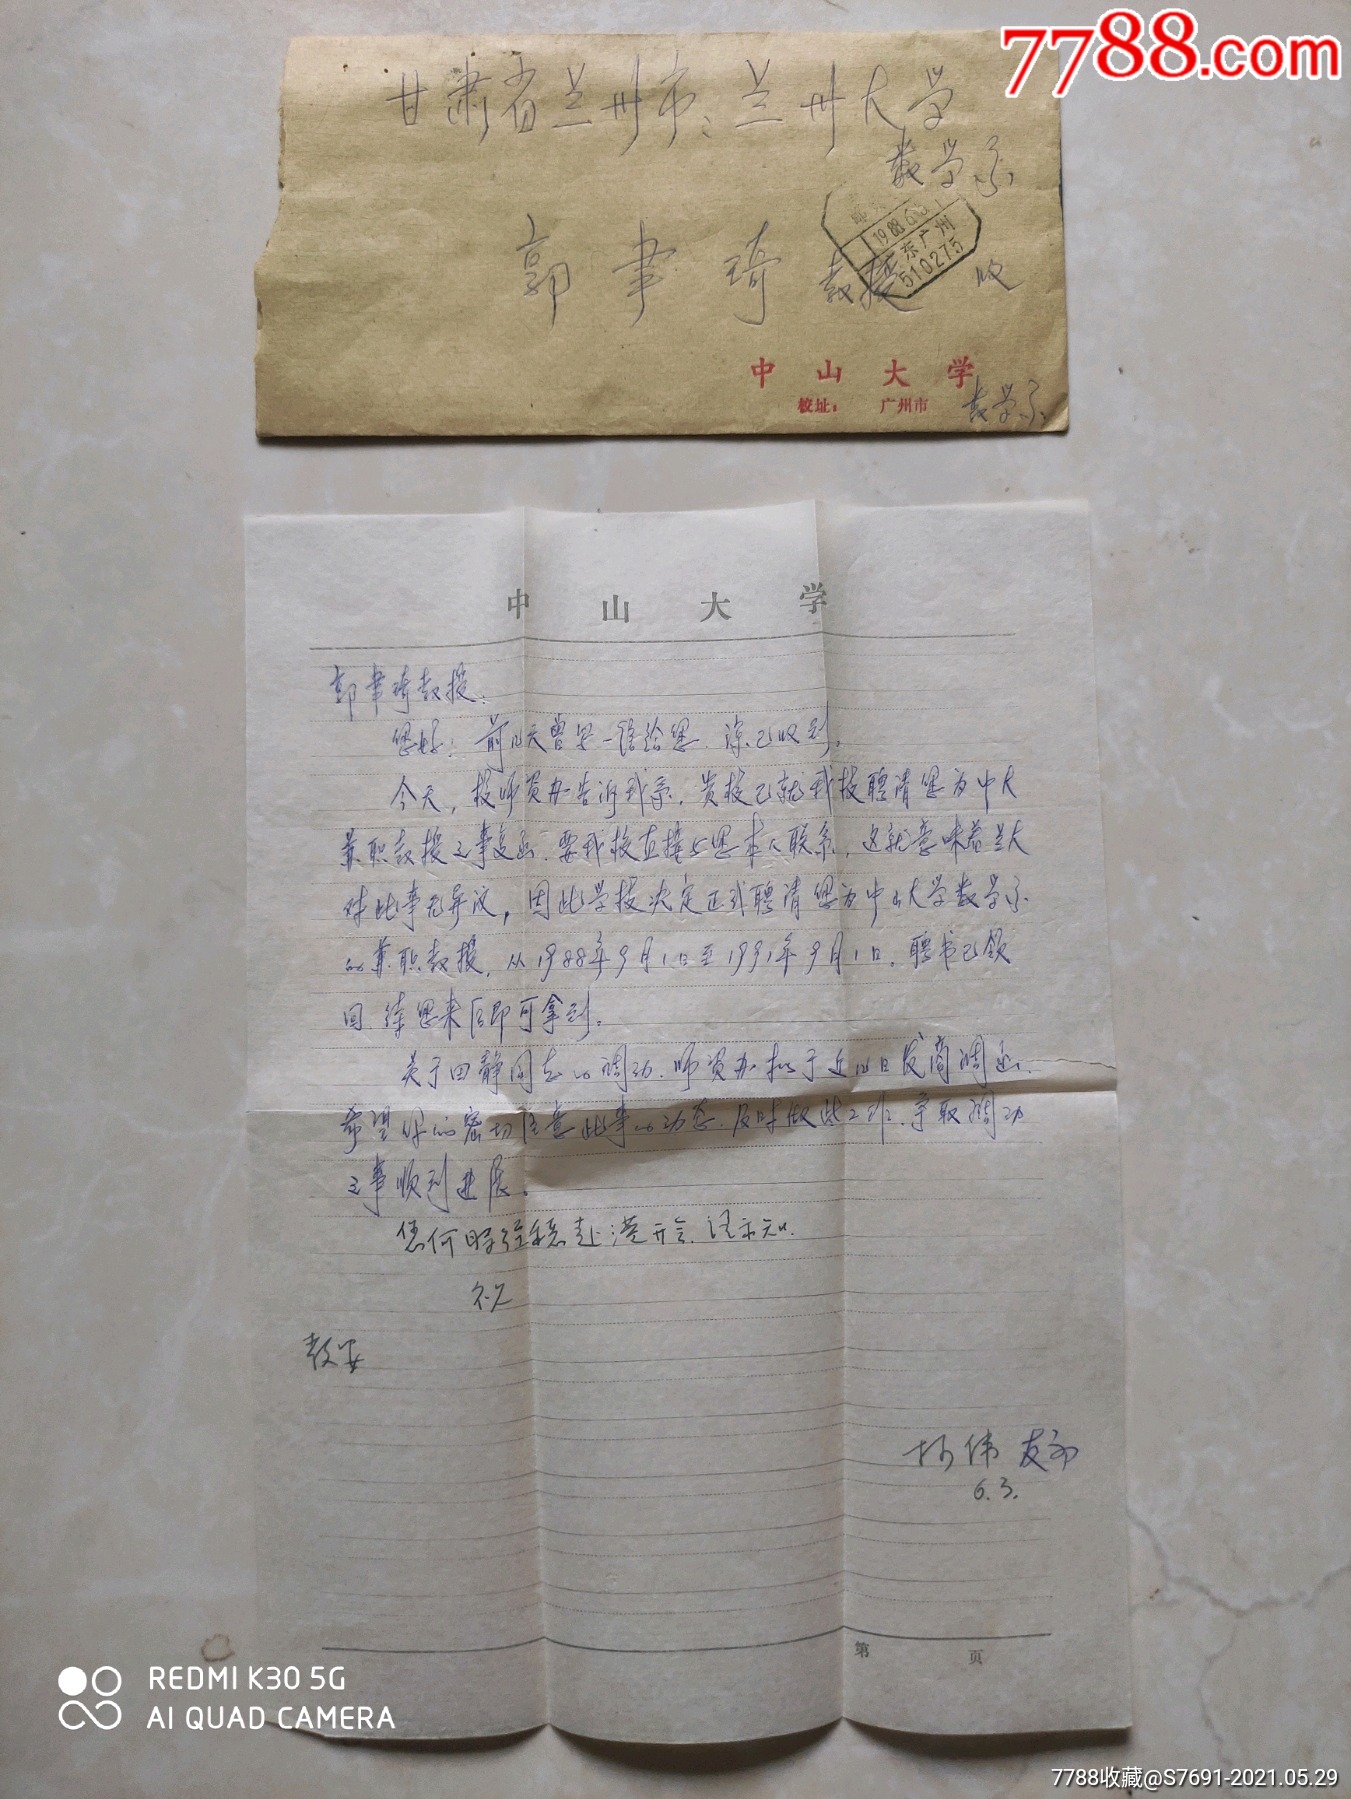 7788.com
甘肃省兰州市:兰州大学
数学系
1988.6.
东广州
510275
郭聿琦教授 收
中山大学
校址: 广州市 数学系
中山大学
郭聿琦教授:
您好!前几天曾里一信给您,谅已收到。
今天,校师资办告诉我系,贵校已就我校聘请您为中大
兼职教授之事复函,要我校直接与您本人联系,这就意味着兰大
对此事无异议,因此学校决定正式聘请您为中山大学数学系
的兼职教授,从1988年9月1日至1991年9月1日。聘书已领
回,待您来后即可拿到。
关于田静同志的调动,师资办拟于近几日发商调函,
希望你们密切注意此事的动态,及时做些工作,争取调动
之事顺利进展。
您何时经穗赴港开会,请示知。
祝
教安
林伟
6.3.
第 页
REDMI K30 5G
AI QUAD CAMERA
7788收藏@S7691-2021.05.29